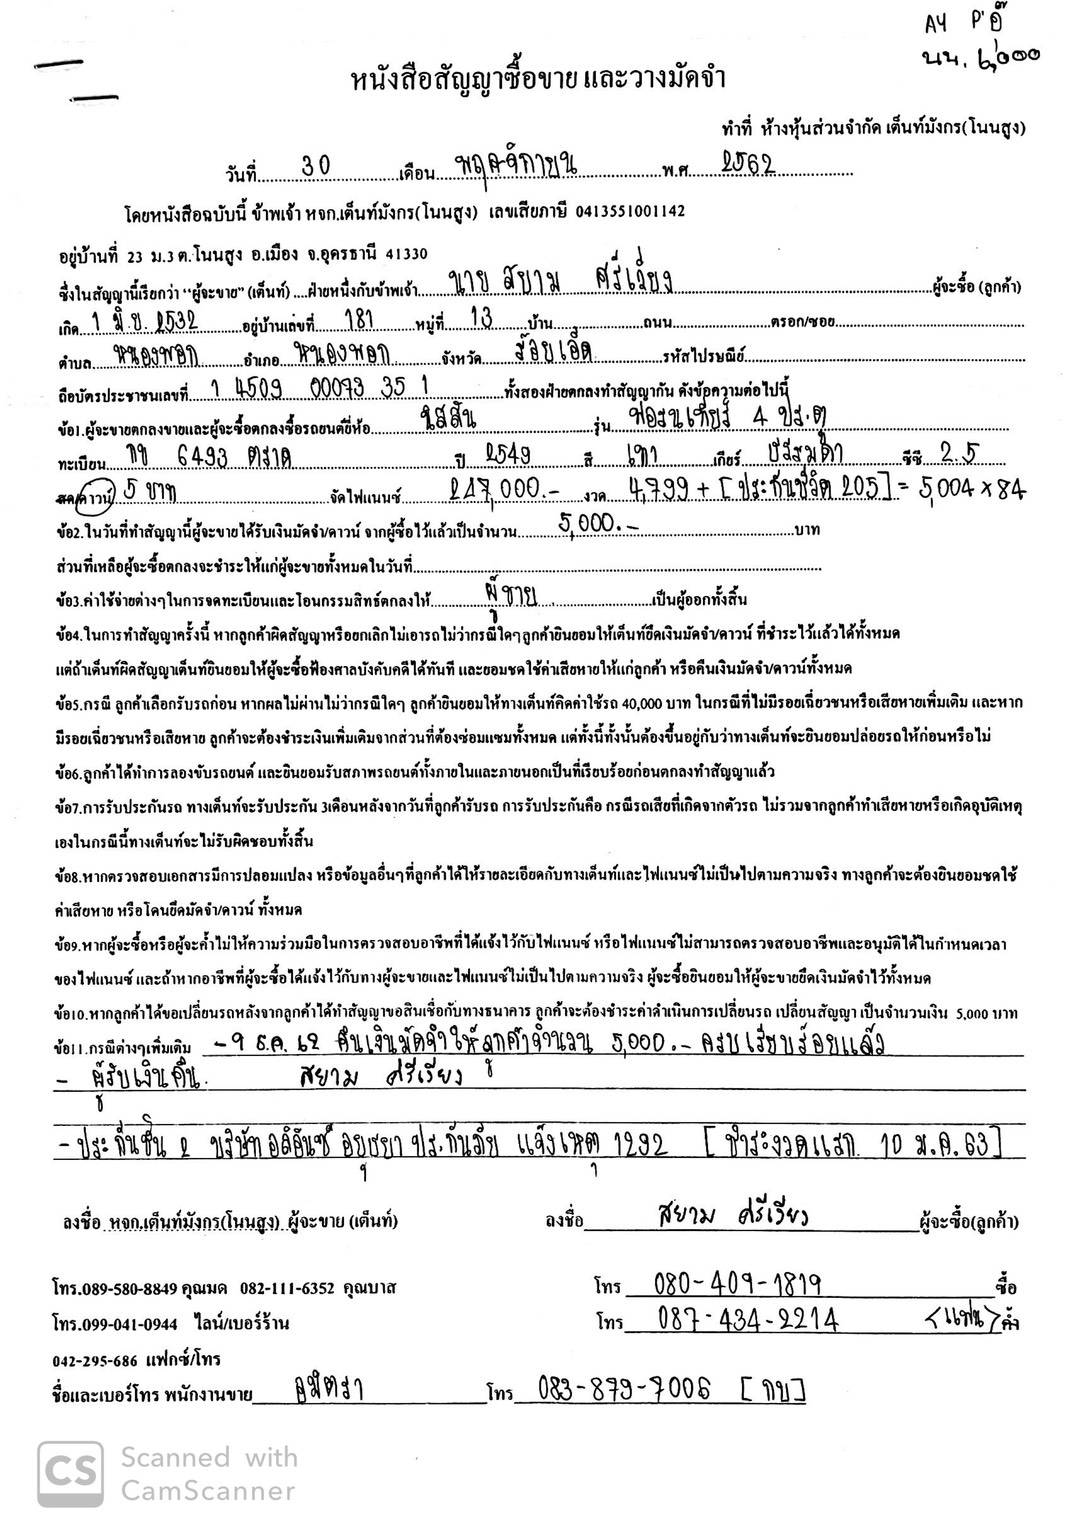 AY P'อู๊
นน. ๖,๐๐๐
หนังสือสัญญาซื้อขาย และวางมัดจำ
ทำที่ ห้างหุ้นส่วนจำกัด เต็นท์มังกร(โนนสูง)
วันที่ 30 เดือน พฤศจิกายน พ.ศ 2562
โดยหนังสือฉบับนี้ ข้าพเจ้า หจก.เต็นท์มังกร(โนนสูง) เลขเสียภาษี 0413551001142
อยู่บ้านที่ 23 ม.3 ต.โนนสูง อ.เมือง จ.อุดรธานี 41330
ซึ่งในสัญญานี้เรียกว่า "ผู้จะขาย" (เต็นท์) ....ฝ่ายหนึ่งกับข้าพเจ้า นาย สยาม ศรีเวียง ผู้จะซื้อ (ลูกค้า)
เกิด 1 มิ.ย. 2532 อยู่บ้านเลขที่ 181 หมู่ที่ 13 บ้าน ถนน ตรอก/ซอย
ตำบล หนองพอก อำเภอ หนองพอก จังหวัด ร้อยเอ็ด รหัสไปรษณีย์
ถือบัตรประชาชนเลขที่ 1 4509 00073 35 1 ทั้งสองฝ่ายตกลงทำสัญญากัน ดังข้อความต่อไปนี้
ข้อ1.ผู้จะขายตกลงขายและผู้จะซื้อตกลงซื้อรถยนต์ยี่ห้อ นิสสัน รุ่น ฟอรนเทียร์ 4 ประตู
ทะเบียน กข 6493 ตราด ปี 2549 สี เทา เกียร์ ธรรมดา ซีซี 2.5
สด/ดาวน์ 5 บาท จัดไฟแนนซ์ 247,000.- งวด 4,799 + [ประกันชีวิต 205] = 5,004 x 84
ข้อ2.ในวันที่ทำสัญญานี้ผู้จะขายได้รับเงินมัดจำ/ดาวน์ จากผู้ซื้อไว้แล้วเป็นจำนวน 5,000.- บาท
ส่วนที่เหลือผู้จะซื้อตกลงจะชำระให้แก่ผู้จะขายทั้งหมดในวันที่
ข้อ3.ค่าใช้จ่ายต่างๆในการจดทะเบียนและโอนกรรมสิทธ์ตกลงให้ ผู้ขาย เป็นผู้ออกทั้งสิ้น
ข้อ4.ในการทำสัญญาครั้งนี้ หากลูกค้าผิดสัญญาหรือยกเลิกไม่เอารถไม่ว่ากรณีใดๆ ลูกค้ายินยอมให้เต็นท์ยึดเงินมัดจำ/ดาวน์ ที่ชำระไว้แล้วได้ทั้งหมด
แต่ถ้าเต็นท์ผิดสัญญาเต็นท์ยินยอมให้ผู้จะซื้อฟ้องศาลบังคับคดีได้ทันที และยอมชดใช้ค่าเสียหายให้แก่ลูกค้า หรือคืนเงินมัดจำ/ดาวน์ทั้งหมด
ข้อ5.กรณี ลูกค้าเลือกรับรถก่อน หากผลไม่ผ่านไม่ว่ากรณีใดๆ ลูกค้ายินยอมให้ทางเต็นท์คิดค่าใช้รถ 40,000 บาท ในกรณีที่ไม่มีรอยเฉี่ยวชนหรือเสียหายเพิ่มเติม และหาก
มีรอยเฉี่ยวชนหรือเสียหาย ลูกค้าจะต้องชำระเงินเพิ่มเติมจากส่วนที่ต้องซ่อมแซมทั้งหมด แต่ทั้งนี้ทั้งนั้นต้องขึ้นอยู่กับว่าทางเต็นท์จะยินยอมปล่อยรถให้ก่อนหรือไม่
ข้อ6.ลูกค้าได้ทำการลองขับรถยนต์ และยินยอมรับสภาพรถยนต์ทั้งภายในและภายนอกเป็นที่เรียบร้อยก่อนตกลงทำสัญญาแล้ว
ข้อ7.การรับประกันรถ ทางเต็นท์จะรับประกัน 3เดือนหลังจากวันที่ลูกค้ารับรถ การรับประกันคือ กรณีรถเสียที่เกิดจากตัวรถ ไม่รวมจากลูกค้าทำเสียหายหรือเกิดอุบัติเหตุ
เองในกรณีนี้ทางเต็นท์จะไม่รับผิดชอบทั้งสิ้น
ข้อ8.หากตรวจสอบเอกสารมีการปลอมแปลง หรือข้อมูลอื่นๆที่ลูกค้าได้ให้รายละเอียดกับทางเต็นท์และไฟแนนซ์ไม่เป็นไปตามความจริง ทางลูกค้าจะต้องยินยอมชดใช้
ค่าเสียหาย หรือโดนยึดมัดจำ/ดาวน์ ทั้งหมด
ข้อ9.หากผู้จะซื้อหรือผู้จะค้ำไม่ให้ความร่วมมือในการตรวจสอบอาชีพที่ได้แจ้งไว้กับไฟแนนซ์ หรือไฟแนนซ์ไม่สามารถตรวจสอบอาชีพและอนุมัติได้ในกำหนดเวลา
ของไฟแนนซ์ และถ้าหากอาชีพที่ผู้จะซื้อได้แจ้งไว้กับทางผู้จะขายและไฟแนนซ์ไม่เป็นไปตามความจริง ผู้จะซื้อยินยอมให้ผู้จะขายยึดเงินมัดจำไว้ทั้งหมด
ข้อ10.หากลูกค้าได้ขอเปลี่ยนรถหลังจากลูกค้าได้ทำสัญญาขอสินเชื่อกับทางธนาคาร ลูกค้าจะต้องชำระค่าดำเนินการเปลี่ยนรถ เปลี่ยนสัญญา เป็นจำนวนเงิน 5,000 บาท
ข้อ11.กรณีต่างๆเพิ่มเติม - 9 ธ.ค. 62 คืนเงินมัดจำให้ลูกค้าจำนวน 5,000.- ครบเรียบร้อยแล้ว
- ผู้รับเงินคืน. สยาม ศรีเรียง
- ประกันชั้น 2 บริษัท อลิอันซ์ อยุธยา ประกันภัย แจ้งเหตุ 1292 [ชำระงวดแรก 10 ม.ค.63]
ลงชื่อ หจก.เต็นท์มังกร(โนนสูง) ผู้จะขาย (เต็นท์) ลงชื่อ สยาม ศรีเวียง ผู้จะซื้อ(ลูกค้า)
โทร.089-580-8849 คุณมด 082-111-6352 คุณบาส โทร 080-409-1819 ซื้อ
โทร.099-041-0944 ไลน์/เบอร์ร้าน โทร 087-434-2214 <แฟน> ค้ำ
042-295-686 แฟกซ์/โทร
ชื่อและเบอร์โทร พนักงานขาย อมิตรา โทร 083-879-7006 [กบ]
CS Scanned with
CamScanner